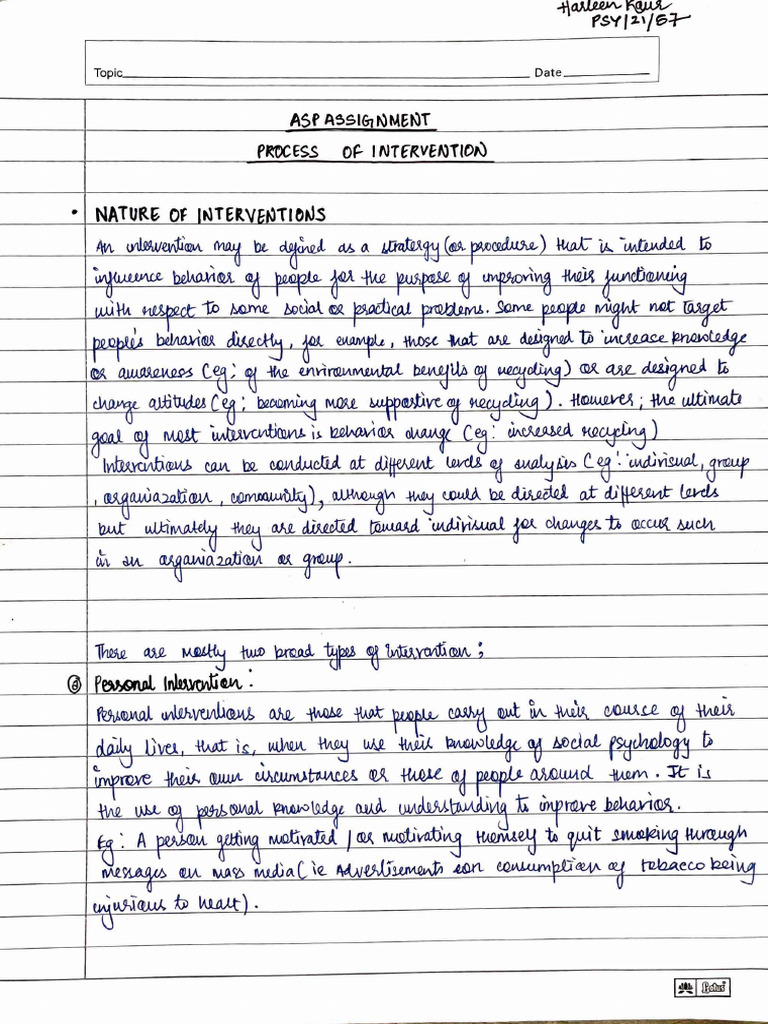 Harleen Kaur
PSY/21/57
Topic Date
ASP ASSIGNMENT
PROCESS OF INTERVENTION
• NATURE OF INTERVENTIONS
An intervention may be defined as a stratergy (or procedure) that is intended to
influence behavior of people for the purpose of improving their functioning
with respect to some social or practical problems. Some people might not target
people's behavior directly, for example, those that are designed to increase knowledge
or awareness (eg; of the environmental benefits of recycling) or are designed to
change attitudes (eg; becoming more supportive of recycling). However; the ultimate
goal of most interventions is behavior change (eg: increased recycling)
Interventions can be conducted at different levels of analysis (eg: indivisual, group
, organiazation, community), although they could be directed at different levels
but ultimately they are directed toward indivisual for changes to occur such
in an organiazation or group.
There are mostly two broad types of intervention;
Personal Intervention:
Personal interventions are those that people carry out in their course of their
daily lives, that is, when they use their knowledge of social psychology to
improve their own circumstances or those of people around them. It is
the use of personal knowledge and understanding to improve behavior.
Eg: A person getting motivated / or motivating themsey to quit smoking through
messages on mass media (ie Advertisements on consumption of tobacco being
injurious to healt).
Lotus